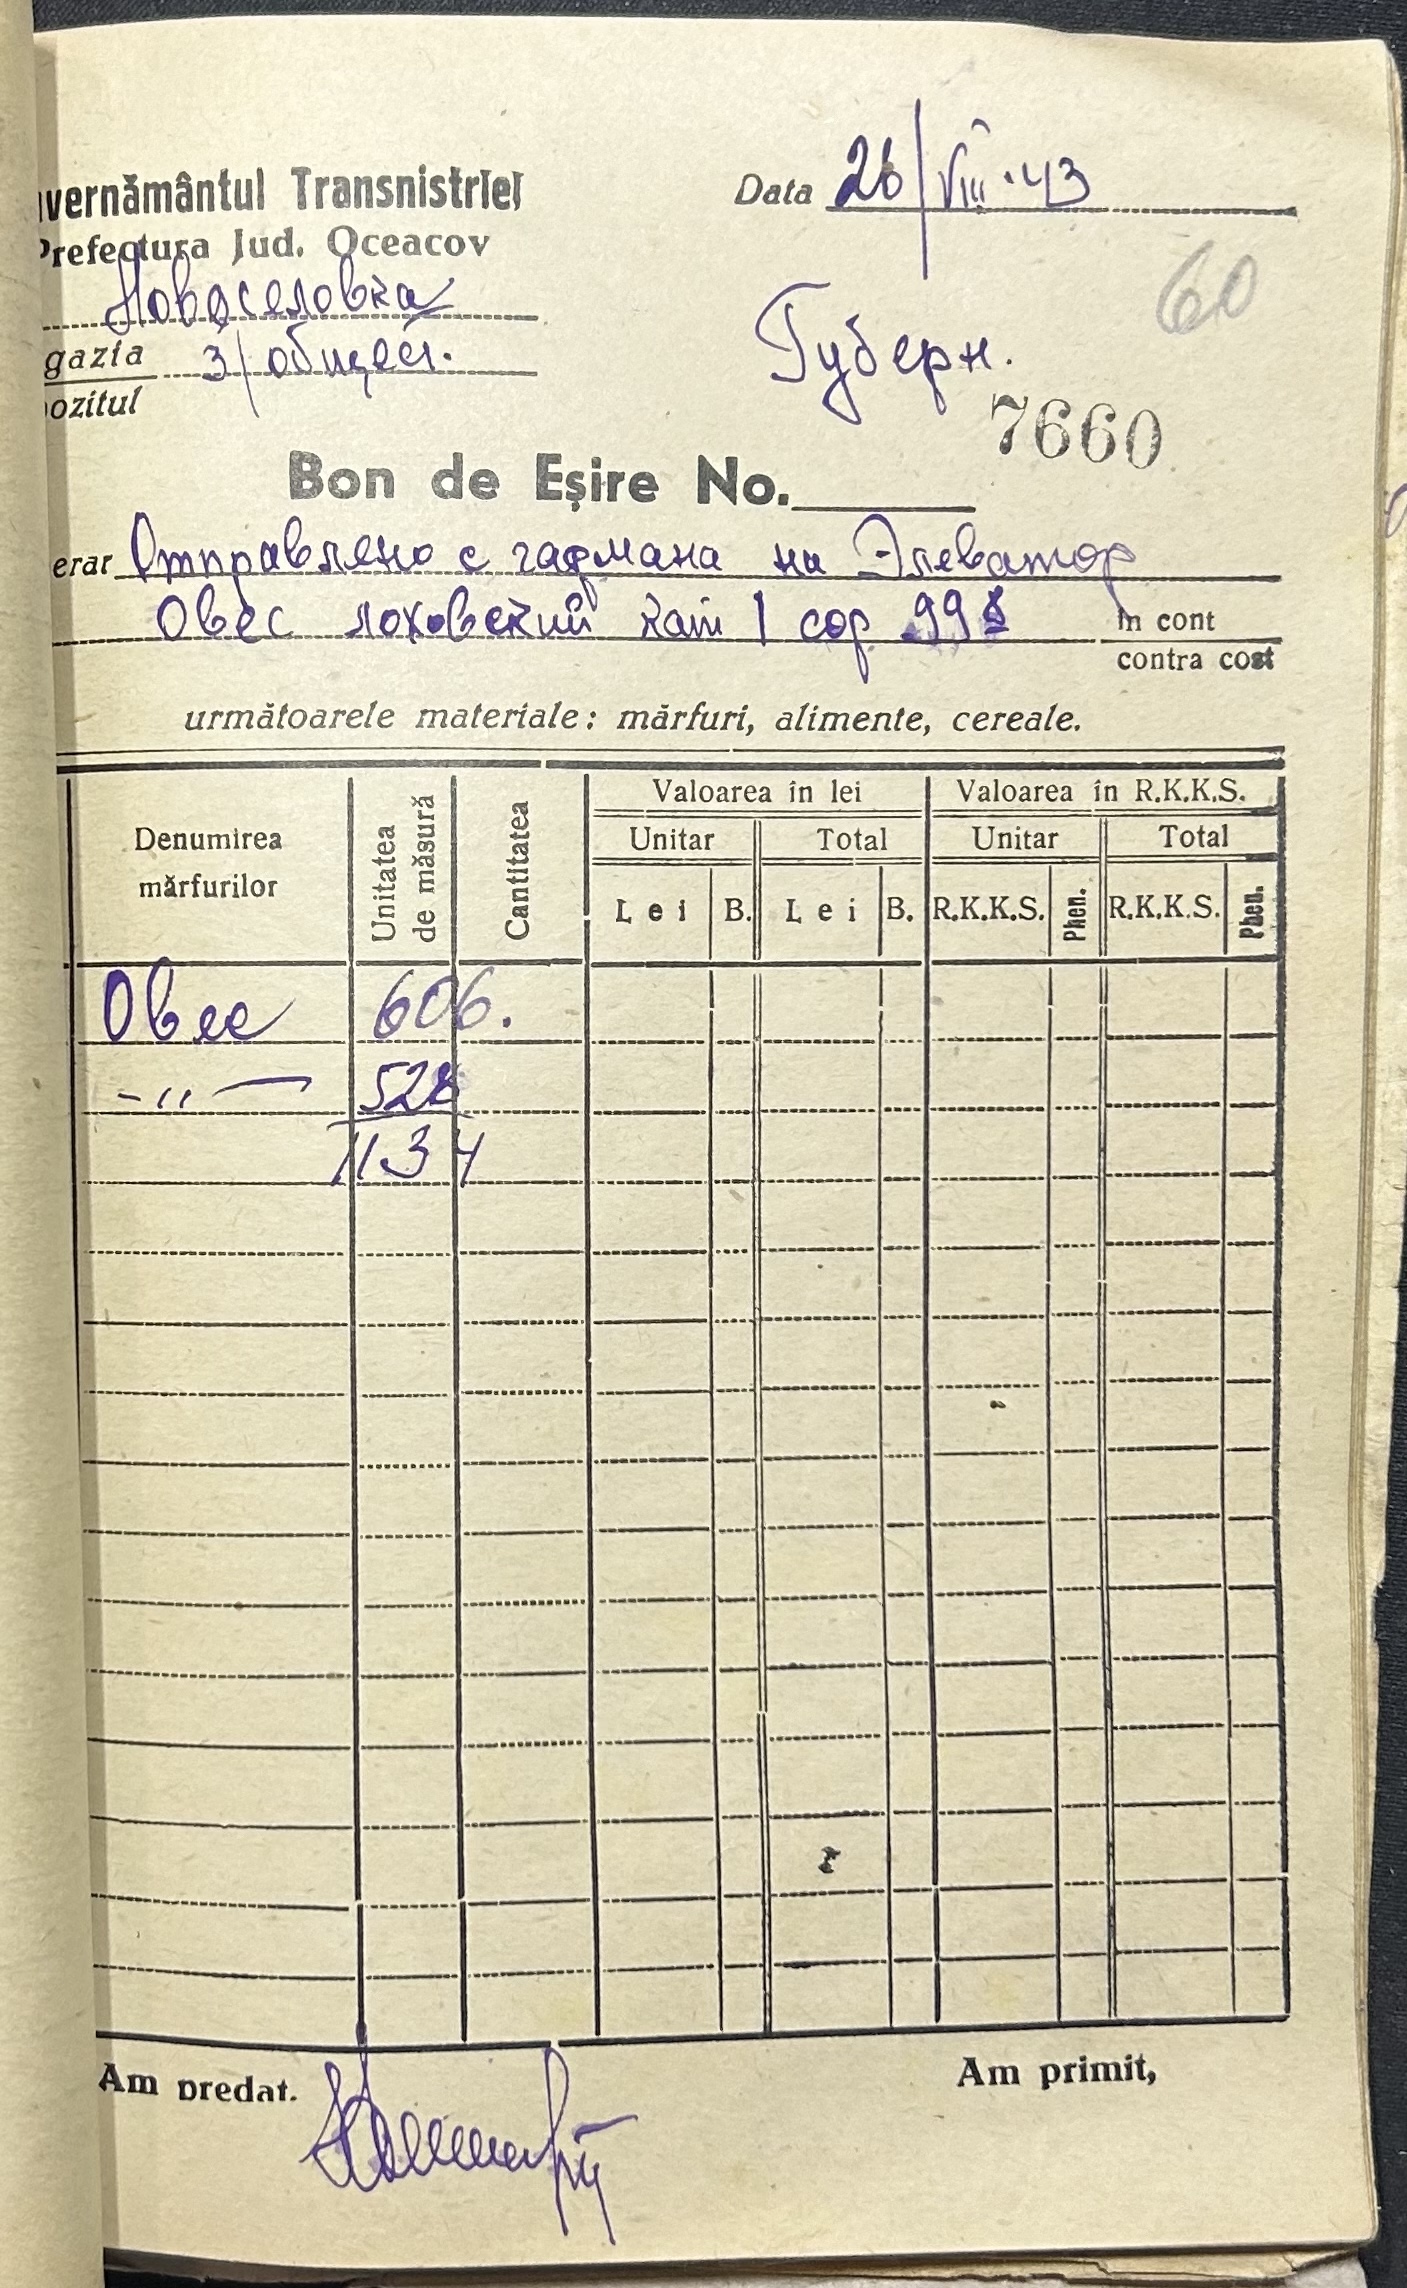 uvernământul Transnistriei
Data 26/VIII·43
Prefectura Jud. Oceacov
Новоселовка
60
gazia 3/общест.
Губерн.
ozitul
7660
Bon de Eşire No.
erar Отправлено с гармана на Элеватор
Овес лоховский кат I сор 99%
în cont
contra cost
următoarele materiale: mărfuri, alimente, cereale.
Denumirea mărfurilor Unitatea de măsură Cantitatea Valoarea în lei Valoarea în R.K.K.S.
Unitar Total Unitar Total
Lei B. Lei B. R.K.K.S. Phen. R.K.K.S. Phen.
Овес 606.
-"- 528
1134
Am predat.
Am primit,